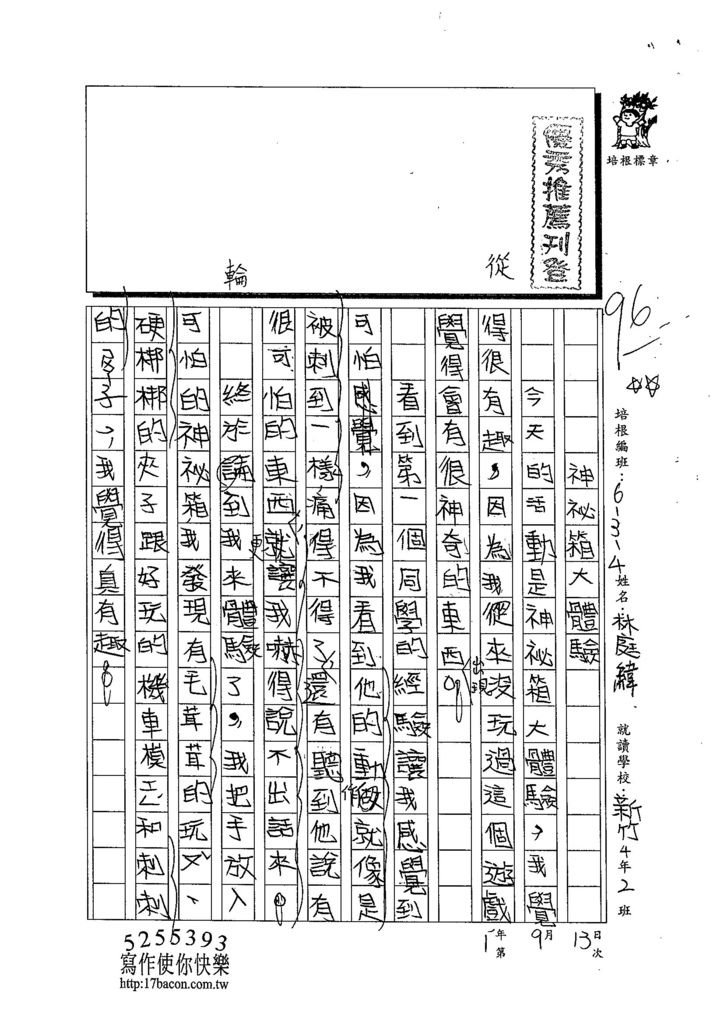 培根標章
優秀推薦刊登
96
培根編班：6-3-4 姓名：林庭緯 就讀學校：新竹4年2班
神祕箱大體驗
今天的活動是神祕箱大體驗，我覺
得很有趣，因為我從來沒玩過這個遊戲
從
覺得會有很神奇的東西出現。
看到第一個同學的經驗讓我感覺到
可怕感覺，因為我看到他的動作就像是
被刺到一樣痛得不得了，還有聽到他說有
很可怕的東西就更讓我嚇得說不出話來。
終於輪到我來體驗了，我把手放入
輪
可怕的神祕箱，我發現有毛茸茸的玩又、
硬梆梆的夾子跟好玩的機車模工和刺刺
的子，我覺得真有趣！
13日 9月 年 第1次
5255393
寫作使你快樂
http:17bacon.com.tw